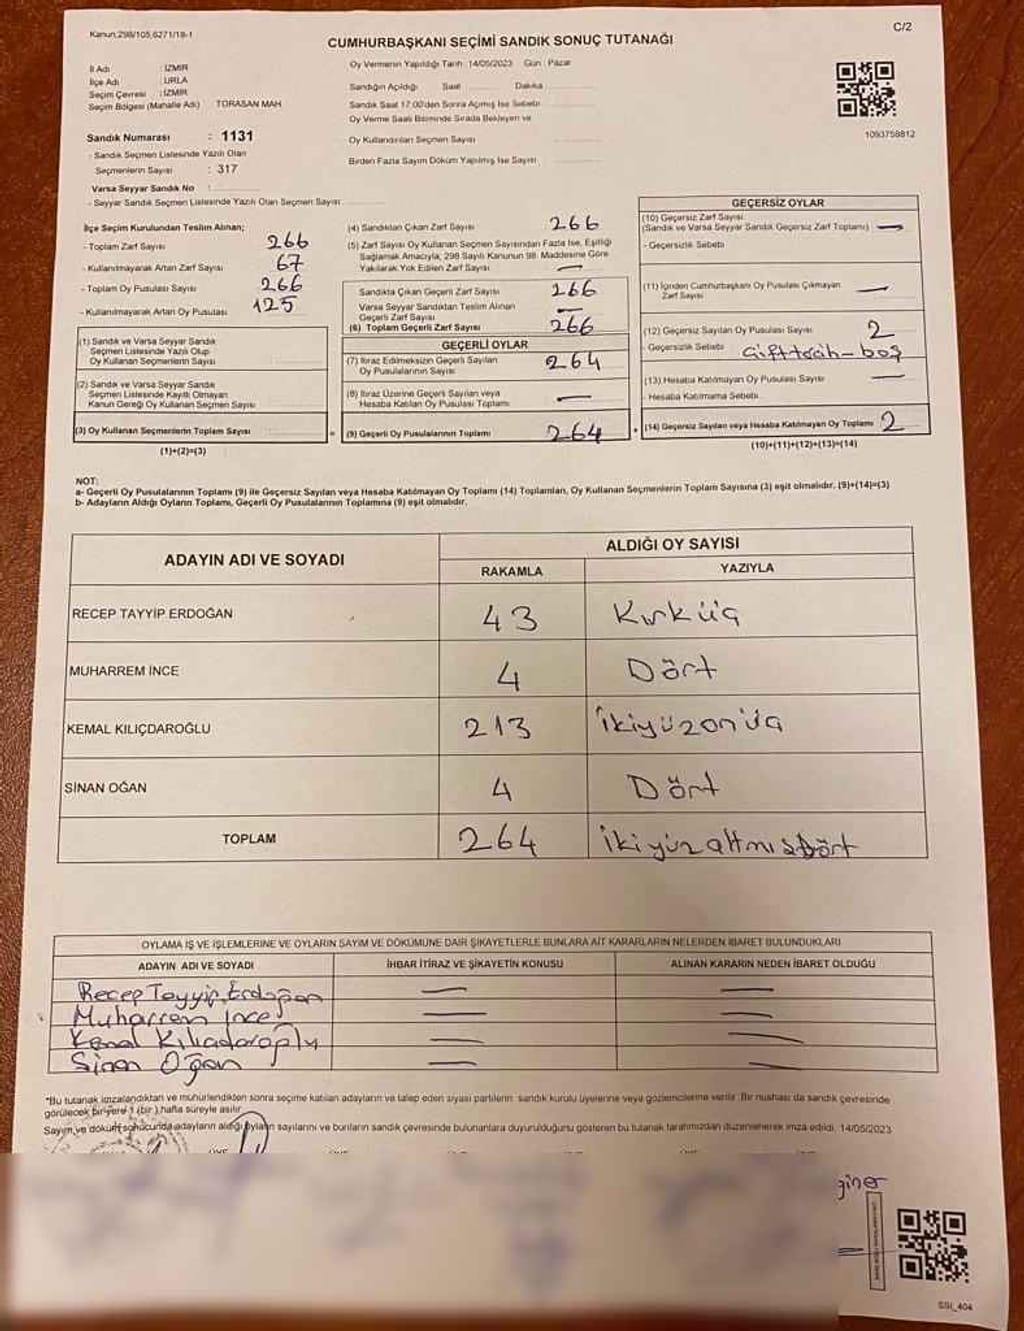 Kanun;298/105,6271/18-1
C/2
CUMHURBAŞKANI SEÇİMİ SANDIK SONUÇ TUTANAĞI
İl Adı : İZMİR
İlçe Adı : URLA
Seçim Çevresi : İZMİR
Seçim Bölgesi (Mahalle Adı) TORASAN MAH
Sandık Numarası : 1131
- Sandık Seçmen Listesinde Yazılı Olan
Seçmenlerin Sayısı : 317
Varsa Seyyar Sandık No :
- Seyyar Sandık Seçmen Listesinde Yazılı Olan Seçmen Sayısı
Oy Vermenin Yapıldığı Tarih : 14/05/2023 Gün : Pazar
Sandığın Açıldığı Saat Dakika
Sandık Saat 17:00'den Sonra Açılmış İse Sebebi
Oy Verme Saati Bitiminde Sırada Bekleyen ve
Oy Kullandırılan Seçmen Sayısı
Birden Fazla Sayım Döküm Yapılmış İse Sayısı
1093758812
İlçe Seçim Kurulundan Teslim Alınan;
- Toplam Zarf Sayısı 266
- Kullanılmayarak Artan Zarf Sayısı 67
- Toplam Oy Pusulası Sayısı 266
- Kullanılmayarak Artan Oy Pusulası 125
(1) Sandık ve Varsa Seyyar Sandık
Seçmen Listesinde Yazılı Olup
Oy Kullanan Seçmenlerin Sayısı
(2) Sandık ve Varsa Seyyar Sandık
Seçmen Listesinde Kayıtlı Olmayan
Kanun Gereği Oy Kullanan Seçmen Sayısı
(3) Oy Kullanan Seçmenlerin Toplam Sayısı
(1)+(2)=(3)
(4) Sandıktan Çıkan Zarf Sayısı 266
(5) Zarf Sayısı Oy Kullanan Seçmen Sayısından Fazla İse, Eşitliği
Sağlamak Amacıyla; 298 Sayılı Kanunun 98. Maddesine Göre
Yakılarak Yok Edilen Zarf Sayısı —
Sandıkta Çıkan Geçerli Zarf Sayısı 266
Varsa Seyyar Sandıktan Teslim Alınan
Geçerli Zarf Sayısı —
(6) Toplam Geçerli Zarf Sayısı 266
GEÇERLİ OYLAR
(7) İtiraz Edilmeksizin Geçerli Sayılan
Oy Pusulalarının Sayısı 264
(8) İtiraz Üzerine Geçerli Sayılan veya
Hesaba Katılan Oy Pusulası Toplamı —
(9) Geçerli Oy Pusulalarının Toplamı 264
GEÇERSİZ OYLAR
(10) Geçersiz Zarf Sayısı
(Sandık ve Varsa Seyyar Sandık Geçersiz Zarf Toplamı) —
- Geçersizlik Sebebi
(11) İçinden Cumhurbaşkanı Oy Pusulası Çıkmayan
Zarf Sayısı —
(12) Geçersiz Sayılan Oy Pusulası Sayısı 2
- Geçersizlik Sebebi Çift tercih - boş
(13) Hesaba Katılmayan Oy Pusulası Sayısı —
- Hesaba Katılmama Sebebi
(14) Geçersiz Sayılan veya Hesaba Katılmayan Oy Toplamı 2
(10)+(11)+(12)+(13)=(14)
NOT:
a- Geçerli Oy Pusulalarının Toplamı (9) ile Geçersiz Sayılan veya Hesaba Katılmayan Oy Toplamı (14) Toplamları, Oy Kullanan Seçmenlerin Toplam Sayısına (3) eşit olmalıdır. (9)+(14)=(3)
b- Adayların Aldığı Oyların Toplamı, Geçerli Oy Pusulalarının Toplamına (9) eşit olmalıdır.
ADAYIN ADI VE SOYADI
ALDIĞI OY SAYISI
RAKAMLA YAZIYLA
RECEP TAYYİP ERDOĞAN 43 Kırküç
MUHARREM İNCE 4 Dört
KEMAL KILIÇDAROĞLU 213 İkiyüzonüç
SİNAN OĞAN 4 Dört
TOPLAM 264 İkiyüzaltmışdört
OYLAMA İŞ VE İŞLEMLERİNE VE OYLARIN SAYIM VE DÖKÜMÜNE DAİR ŞİKAYETLERLE BUNLARA AİT KARARLARIN NELERDEN İBARET BULUNDUKLARI
ADAYIN ADI VE SOYADI İHBAR İTİRAZ VE ŞİKAYETİN KONUSU ALINAN KARARIN NEDEN İBARET OLDUĞU
Recep Tayyip Erdoğan — —
Muharrem İnce — —
Kemal Kılıçdaroğlu — —
Sinan Oğan — —
*Bu tutanak imzalandıktan ve mühürlendikten sonra seçime katılan adayların ve talep eden siyasi partilerin sandık kurulu üyelerine veya gözlemcilerine verilir. Bir nüshası da sandık çevresinde
görülecek bir yere 1 (bir) hafta süreyle asılır.
Sayım ve döküm sonucunda adayların aldığı oyların sayılarını ve bunların sandık çevresinde bulunanlara duyurulduğunu gösteren bu tutanak tarafımızdan düzenlenerek imza edildi. 14/05/2023
giner
SSI_404